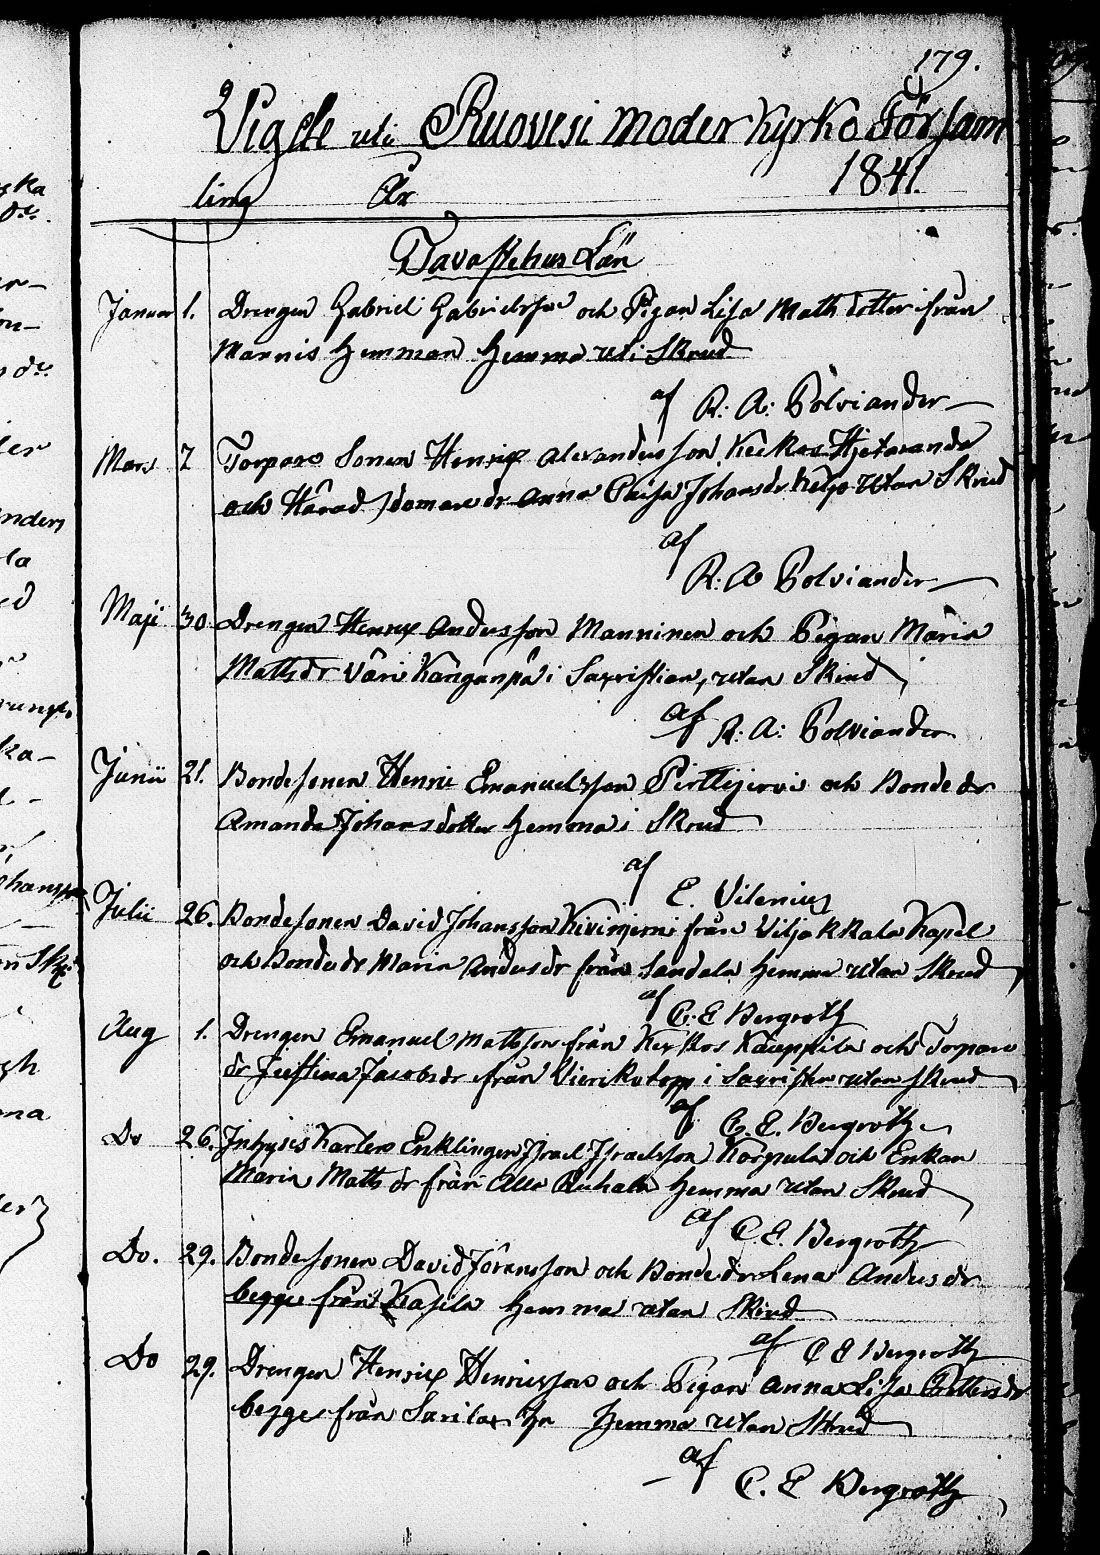 179.
Vigde uti Ruovesi moder Kyrko Församling
År 1841.
Tavastehus Län
Januar 1. Drengen Gabriel Gabrielsson och Pigan Lisa Maths dotter från
Mannis Hemman hemma uti Skrud
af R: A: Pölviander
Mars 7 Torpare Sonen Henrik Alexandersson Keckos Hietaranda
och Härad domare dr Anna Caisa Johans dr Keljo utan Skrud
af
R: A Polviander
Maji 30 Drengen Henrik Andersson Manninen och Pigan Maria
Maths dr Väri Kanganpä i Sacristian, utan Skrud
af R: A: Polviander
Junii 21. Bondesonen Henric Emanuelsson Pirttijervi och Bonde dr
Amanda Johans dotter hemma i Skrud
af E. Vilenius
Julii 26. Bondesonen David Johansson Kivinjemi från Viljakkala Kapel
och Bonde dr Maria Anders dr från Sandala hemma utan Skrud
af C. E Bergroth
Aug 1. Drengen Emanuel Matsson från Kauppila och Torpare
dr Justina Jacobs dr från i Sacristan utan skrud
af C. E. Bergroth
Do 26. Inhyses Karlen Enklingen Israel Israelsson Korpula och Enkan
Maria Maths dr från hemma utan Skrud
af C. E. Bergroth
Do. 29. Bondesonen David Göransson och Bonde dr Lena Anders dr
begge från hemma utan Skrud
af C E Bergroth
Do 29. Drengen Henrik Henricsson och Pigan Anna Lisa dr
begge från hemma utan Skrud
af
C. E Bergroth